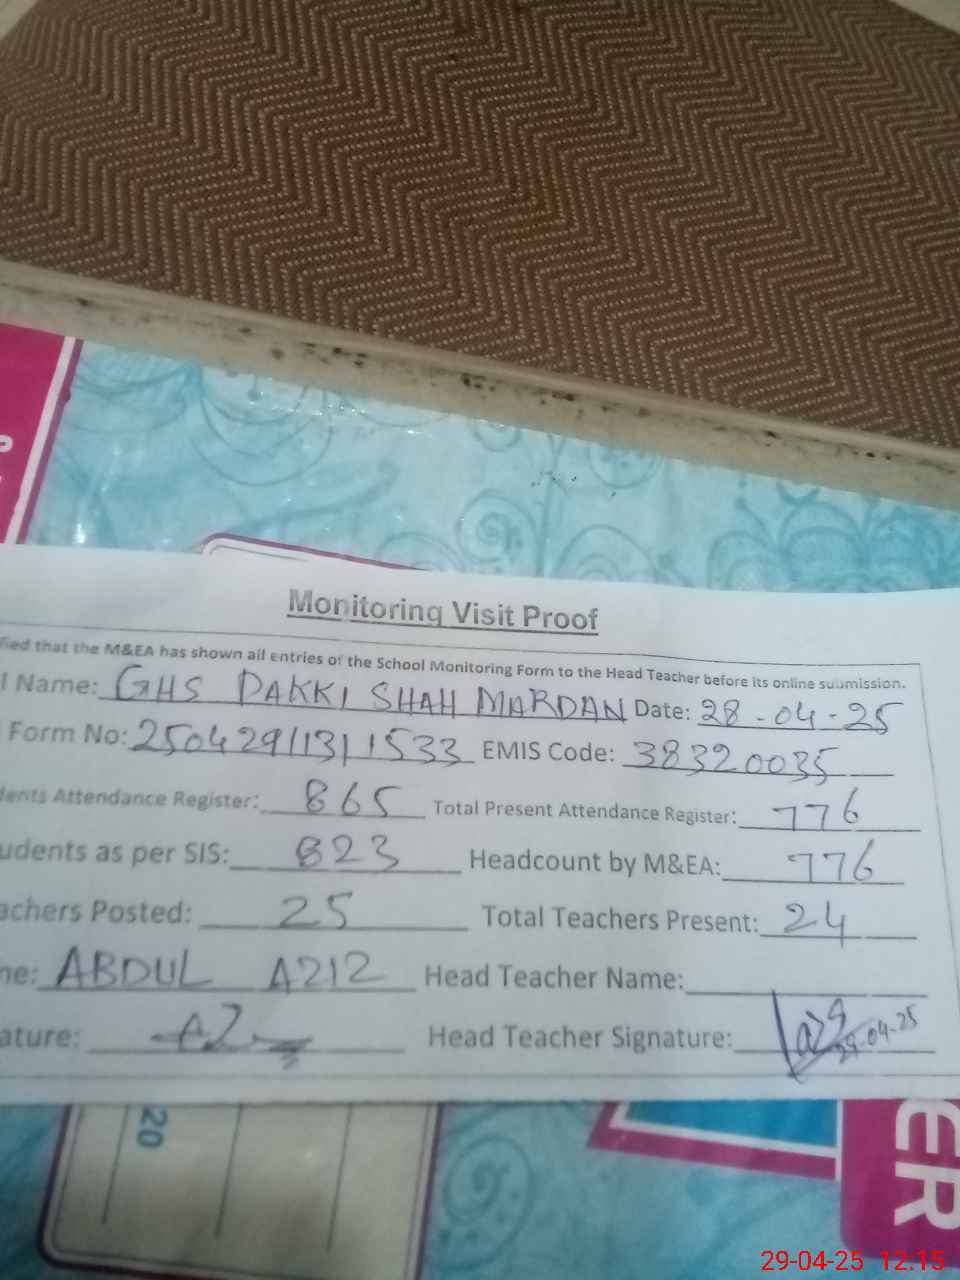 Monitoring Visit Proof
fied that the M&EA has shown all entries of the School Monitoring Form to the Head Teacher before its online submission.
l Name: GHS DAKKI SHAH MARDAN Date: 28-04-25
Form No: 250429113111533 EMIS Code: 38320035
dents Attendance Register: 865 Total Present Attendance Register: 776
udents as per SIS: 823 Headcount by M&EA: 776
achers Posted: 25 Total Teachers Present: 24
me: ABDUL AZIZ Head Teacher Name:
ature: Head Teacher Signature: 29-04-25
20
ER
29-04-25 12:15